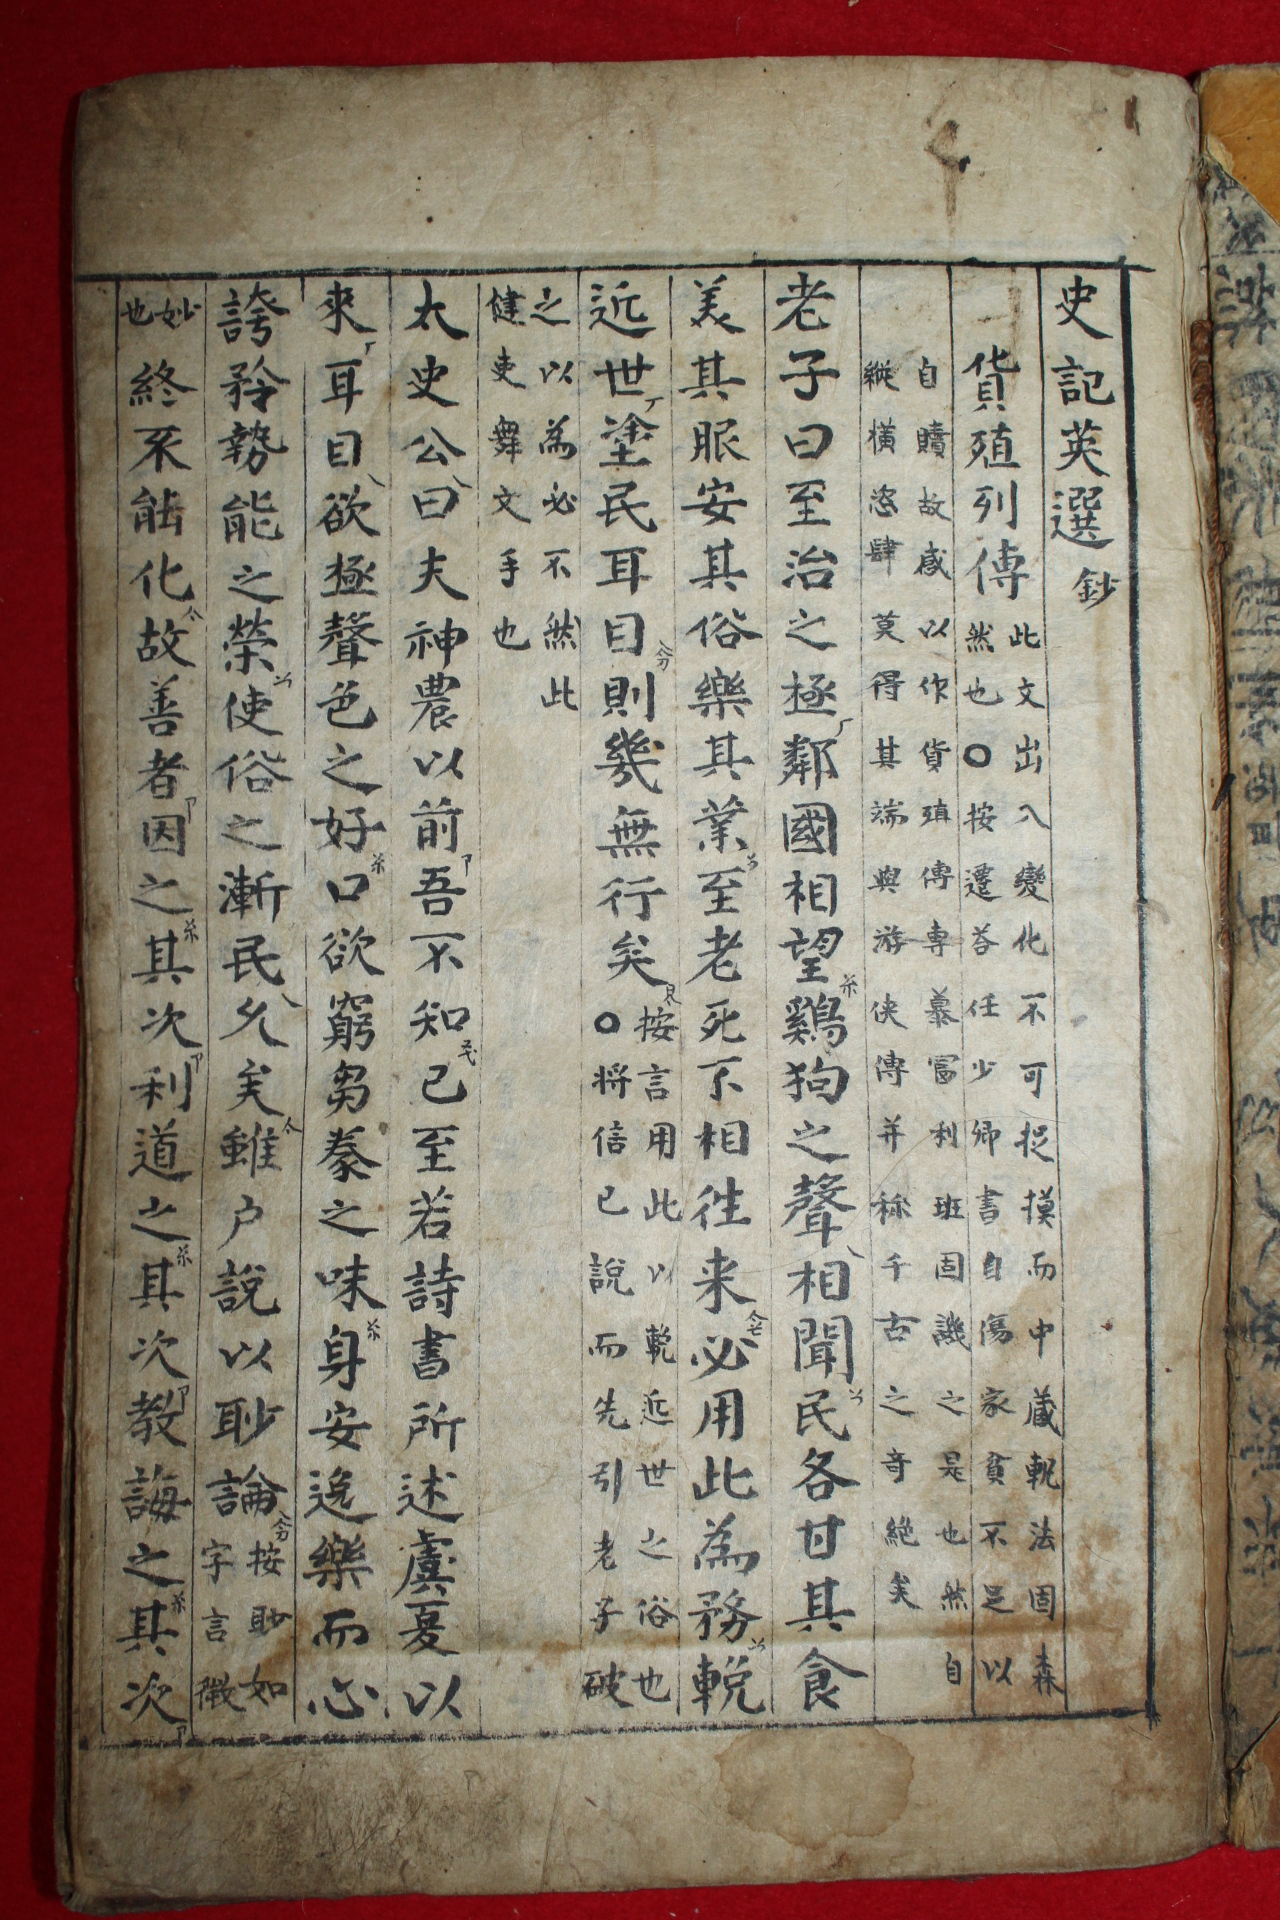 史記英選 鈔
貨殖列傳 此文出入變化不可捉摸而中藏軌法固森
然也○按遷荅任少卿書自傷家貧不足以
自贖故感以作貨殖傳專慕富利班固譏之是也然自
縱橫恣肆莫得其端與游俠傳并稱千古之奇絶矣
老子曰至治之極鄰國相望鷄狗之聲相聞民各甘其食
美其服安其俗樂其業至老死不相徃来必用此為務輓
近世塗民耳目則幾無行矣 按言用此以輓近世之俗也
○将信己說而先引老子破
之以為必不然此
健吏舞文手也
太史公曰夫神農以前吾不知已至若詩書所述虞夏以
來耳目欲極聲色之好口欲窮芻豢之味身安逸樂而心
誇矜勢能之榮使俗之漸民久矣雖户說以眇論 按眇如
字言微
妙
也 終不能化故善者因之其次利道之其次教誨之其次